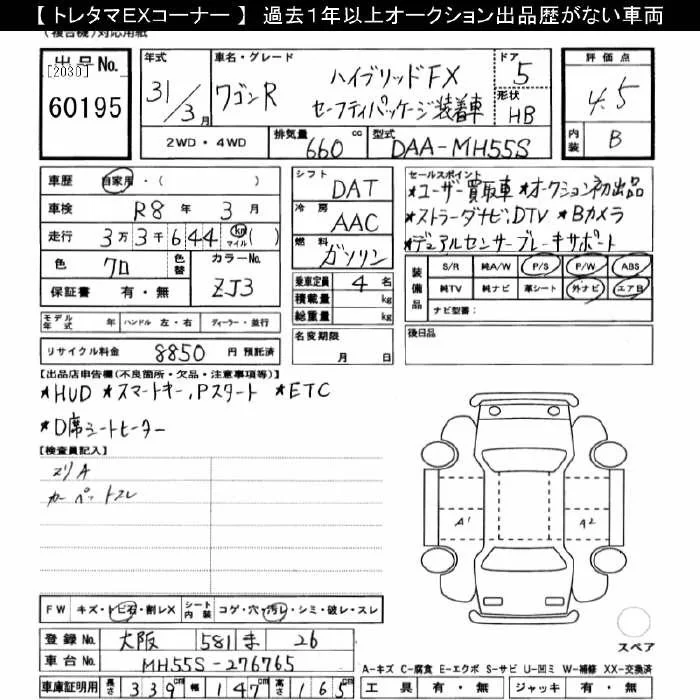 【 トレタマEXコーナー 】 過去1年以上オークション出品歴がない車両
(複合機)対応用紙
出品No. [2030] 60195
年式 31/3月
車名・グレード ワゴンR ハイブリッドFX セーフティパッケージ装着車
ドア 5
形状 HB
評価点 4.5
内装 B
2WD・4WD
排気量 660 cc
型式 DAA-MH55S
車歴 自家用・( )
車検 R8年 3月
走行 3万3千644 km マイル ( )
色 クロ
色替
カラーNo. ZJ3
保証書 有・無
シフト DAT
冷房 AAC
燃料 ガソリン
乗車定員 4名
積載量 kg
総重量 kg
セールスポイント
★ユーザー買取車 ★オークション初出品
★ストラーダナビ,DTV ★Bカメラ
★デュアルセンサーブレーキサポート
装備品 S/R 純A/W P/S P/W ABS
純TV 純ナビ 革シート 外ナビ エアB
ナビ型番:
モデル年式 年 ハンドル 左・右 ディーラー・並行
名変期限 月 日
後日品
リサイクル料金 8850 円 預託済
【出品店申告欄(不良箇所・欠品・注意事項等)】
★HUD ★スマートキー,Pスタート ★ETC
★D席シートヒーター
【検査員記入】
スリA
カーペットスレ
A1 A2
FW キズ・トビ石・割レX シート内装 コゲ・穴・汚レ・シミ・破レ・スレ
スペア
登録No. 大阪 581 ま 26
車台No. MH55S-276765
A-キズ C-腐食 E-エクボ S-サビ U-凹ミ W-補修 XX-交換済
車庫証明用 長さ 339cm 幅 147cm 高さ 165cm
工具 有・無 ジャッキ 有・無